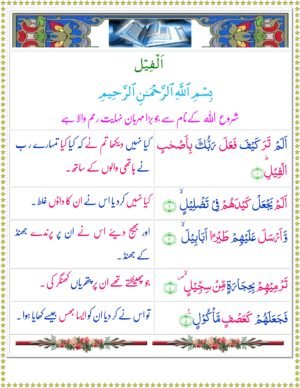 اَلْفِيْل
بِسْمِ اللّٰهِ الرَّحْمٰنِ الرَّحِيْمِ
شروع اللہ کے نام سے جو بڑا مہربان نہایت رحم والا ہے
اَلَمْ تَرَ كَيْفَ فَعَلَ رَبُّكَ بِاَصْحٰبِ
الْفِيْلِ ؕ﴿۱﴾
کیا نہیں دیکھا تم نے کہ کیا کیا تمہارے رب
نے ہاتھی والوں کے ساتھ۔
اَلَمْ يَجْعَلْ كَيْدَهُمْ فِيْ تَضْلِيْلٍ ۙ﴿۲﴾
کیا نہیں کر دیا اس نے ان کا داؤں غلط۔
وَّاَرْسَلَ عَلَيْهِمْ طَيْرًا اَبَابِيْلَ ۙ﴿۳﴾
اور بھیج دیئے اس نے ان پر پرندے جھنڈ
کے جھنڈ۔
تَرْمِيْهِمْ بِحِجَارَةٍ مِّنْ سِجِّيْلٍ ۪ۙ﴿۴﴾
جو پھینکتے تھے ان پر پتھریاں کھنگر کی۔
فَجَعَلَهُمْ كَعَصْفٍ مَّاْكُوْلٍ ؑ﴿۵﴾
تو اس نے کر دیا ان کو ایسا بھس جیسے کھایا ہوا۔